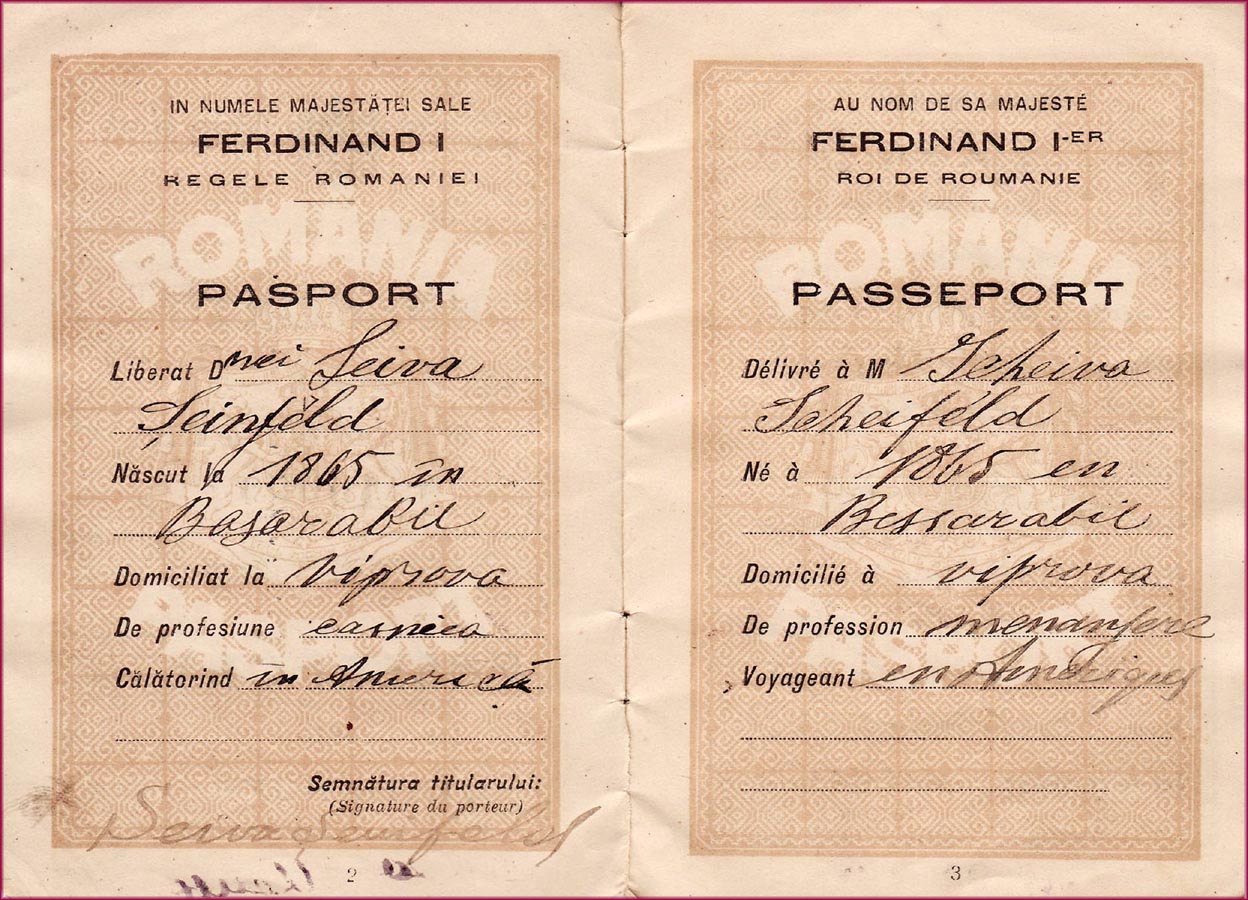 IN NUMELE MAJESTĂȚEI SALE
FERDINAND I
REGELE ROMANIEI
ROMÂNIA
PAȘPORT
Liberat Dnei Șeiva
Șeinfeld
Născut la 1865 în
Basarabia
Domiciliat la Viprova
De profesiune casnica
Călătorind în America
PAȘPORT
Semnătura titularului:
(Signature du porteur)
2
AU NOM DE SA MAJESTÉ
FERDINAND I-ER
ROI DE ROUMANIE
ROMÂNIA
PASSEPORT
Délivré à M Scheiva
Scheiféld
Né à 1865 en
Bessarabie
Domicilié à viprova
De profession
Voyageant en
PAȘPORT
3